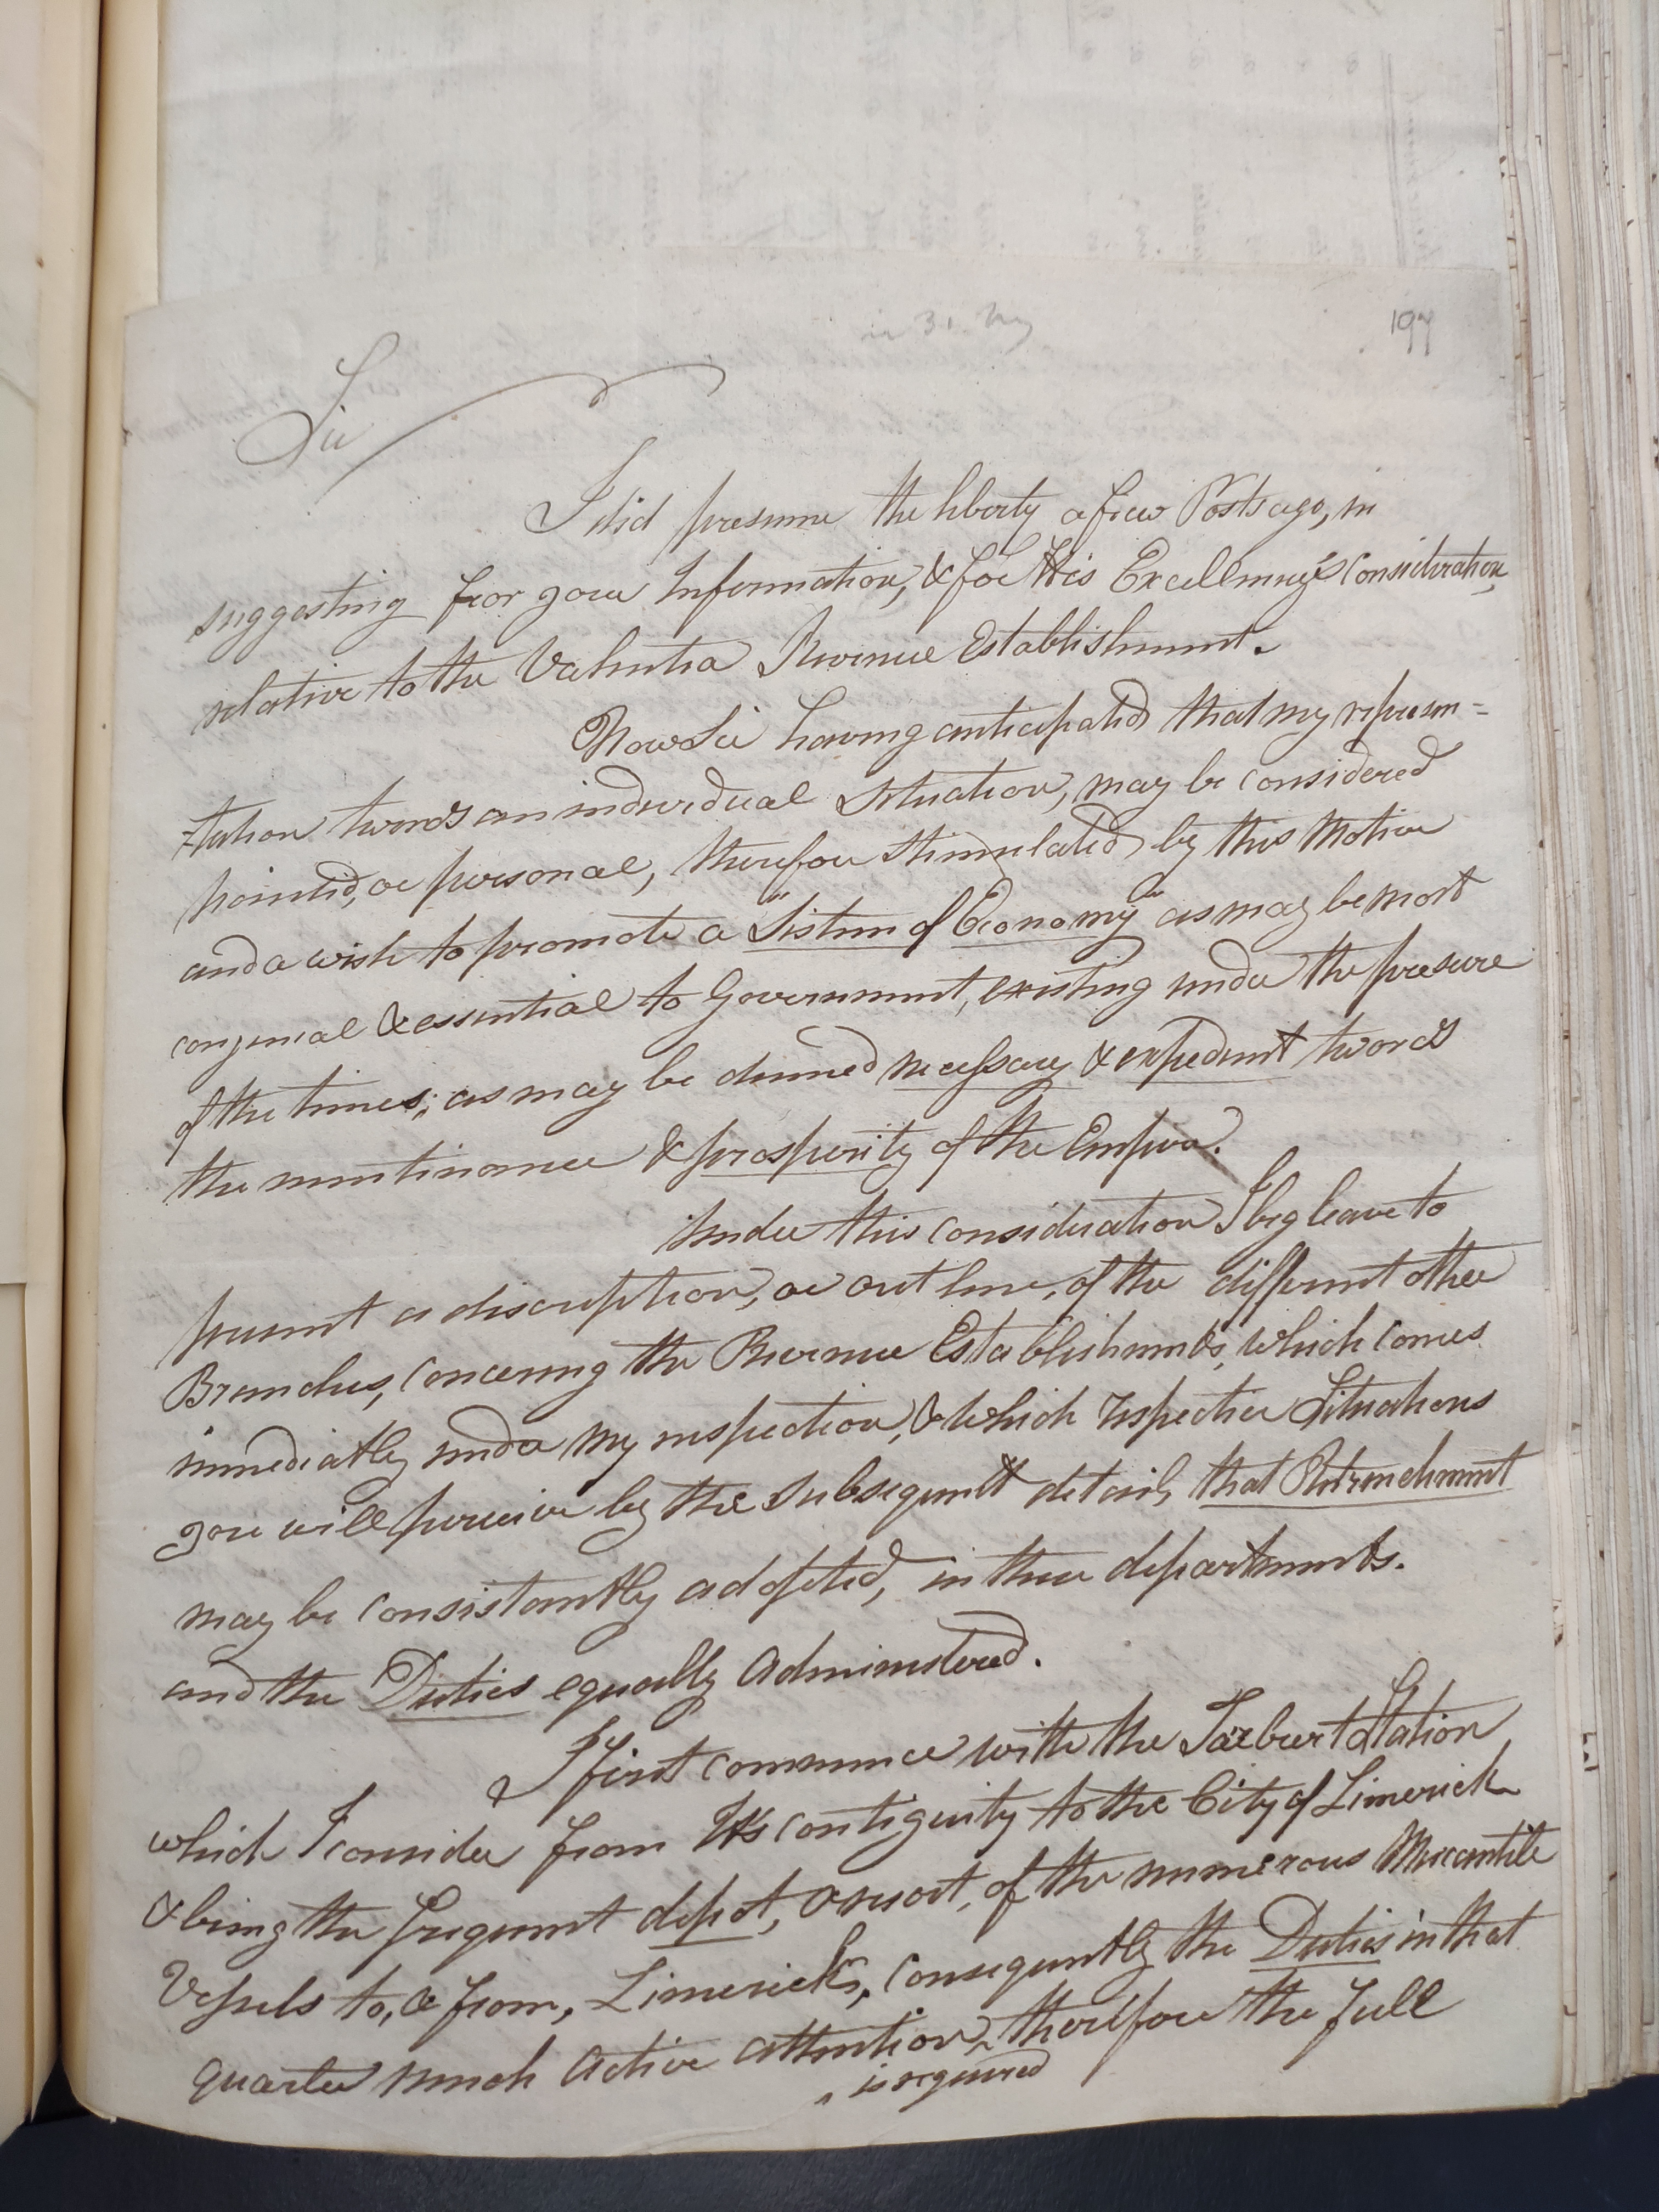 197
Sir
I did presume the liberty a few Posts ago, in
suggesting for your Information, & for His Excellency's Consideration,
relative to the Valentia Revenue Establishment.
Now Sir having anticipated that my represen=
=tation twords an individual Situation, may be considered
pointed, or personal, therefore stimulated by this Motive
and a wish to promote a "Sistem of Economy" as may be most
congenial & essential to Government, existing under the presure
of the times; as may be deemed necessary & expedient twords
the mentinance & prosperity of the Empire.
Under this Consideration I beg leave to
present a discription, or out line, of the different other
Branches, Concerning the Revenue Establishments, which comes
immediatly under my inspection, & which respective Situations
you will perceive by the subsequent detail, that Retrenchment
may be Consistantly adopted, in these departments.
and the Duties equally Administered.
I first commence with the Tarbert Station
which I consider from Its contiguity to the City of Limerick
& being the frequent depot, & resort, of the numerous Mercantile
Vessels to, & from, Limerick, Consequently the Duties in that
quarter much Active attention, therefore the full
^ is required